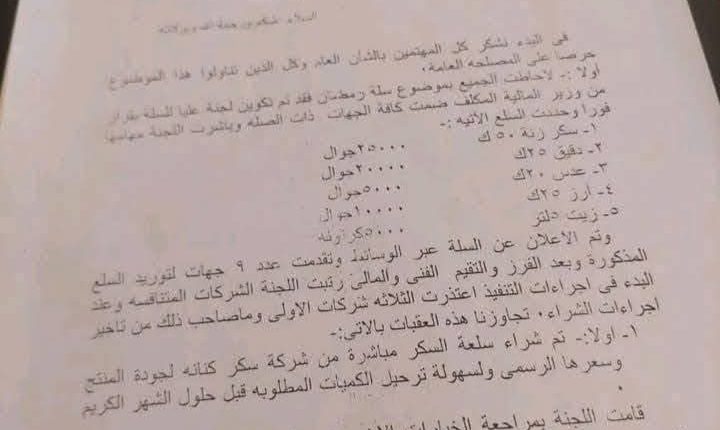 السلام عليكم ورحمة الله وبركاته
فى البدء نشكر كل المهتمين بالشأن العام وكل الذين تناولوا هذا الموضوع
حرصا على المصلحه العامة.
اولا :- لاحاطت الجميع بموضوع سلة رمضان فقد تم تكوين لجنة عليا للسلة بقرار
من وزير المالية المكلف ضمت كافة الجهات ذات الصله وباشرت اللجنة مهامها
فورا وحددت السلع الاتيه :-
١- سكر زنة ٥٠ ك ٢٥٠٠٠جوال
٢- دقيق ٢٥ك ٢٠٠٠٠جوال
٣- عدس ٢٠ك ٥٠٠٠جوال
٤- ارز ٢٥ك ١٠٠٠٠جوال
٥- زيت ٥لتر ٥٠٠٠كرتونه
وتم الاعلان عن السلة عبر الوسائط وتقدمت عدد ٩ جهات لتوريد السلع
المذكورة وبعد الفرز والتقيم الفنى والمالى رتبت اللجنة الشركات المتنافسه وعند
البدء فى اجراءات التنفيذ اعتذرت الثلاثه شركات الاولى وماصاحب ذلك من تاخير
اجراءات الشراء. تجاوزنا هذه العقبات بالاتى:-
١- اولا:- تم شراء سلعة السكر مباشرة من شركة سكر كنانه لجودة المنتج
وسعرها الرسمى ولسهولة ترحيل الكميات المطلوبه قبل حلول الشهر الكريم
.
قامت اللجنة بمراجعة الخيارات